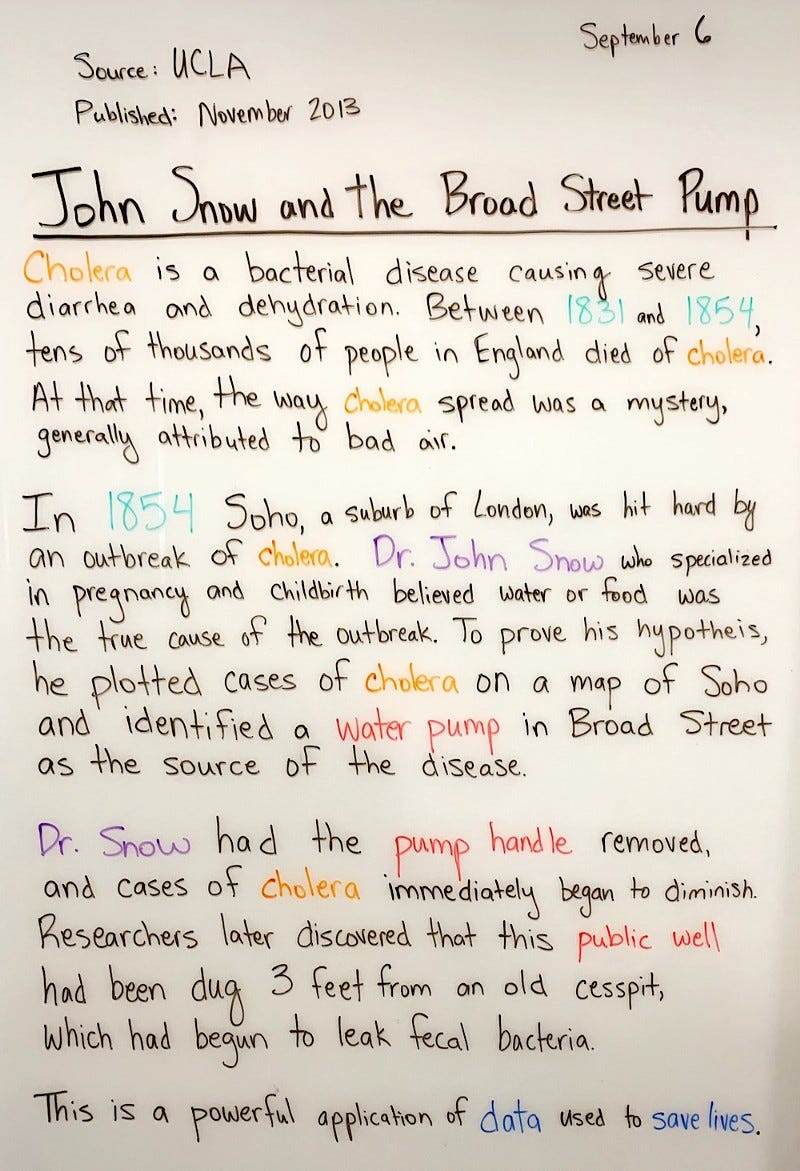 September 6
Source: UCLA
Published: November 2013
John Snow and the Broad Street Pump
Cholera is a bacterial disease causing severe
diarrhea and dehydration. Between 1831 and 1854,
tens of thousands of people in England died of cholera.
At that time, the way cholera spread was a mystery,
generally attributed to bad air.
In 1854 Soho, a suburb of London, was hit hard by
an outbreak of cholera. Dr. John Snow who specialized
in pregnancy and childbirth believed water or food was
the true cause of the outbreak. To prove his hypotheis,
he plotted cases of cholera on a map of Soho
and identified a water pump in Broad Street
as the source of the disease.
Dr. Snow had the pump handle removed,
and cases of cholera immediately began to diminish.
Researchers later discovered that this public well
had been dug 3 feet from an old cesspit,
which had begun to leak fecal bacteria.
This is a powerful application of data used to save lives.